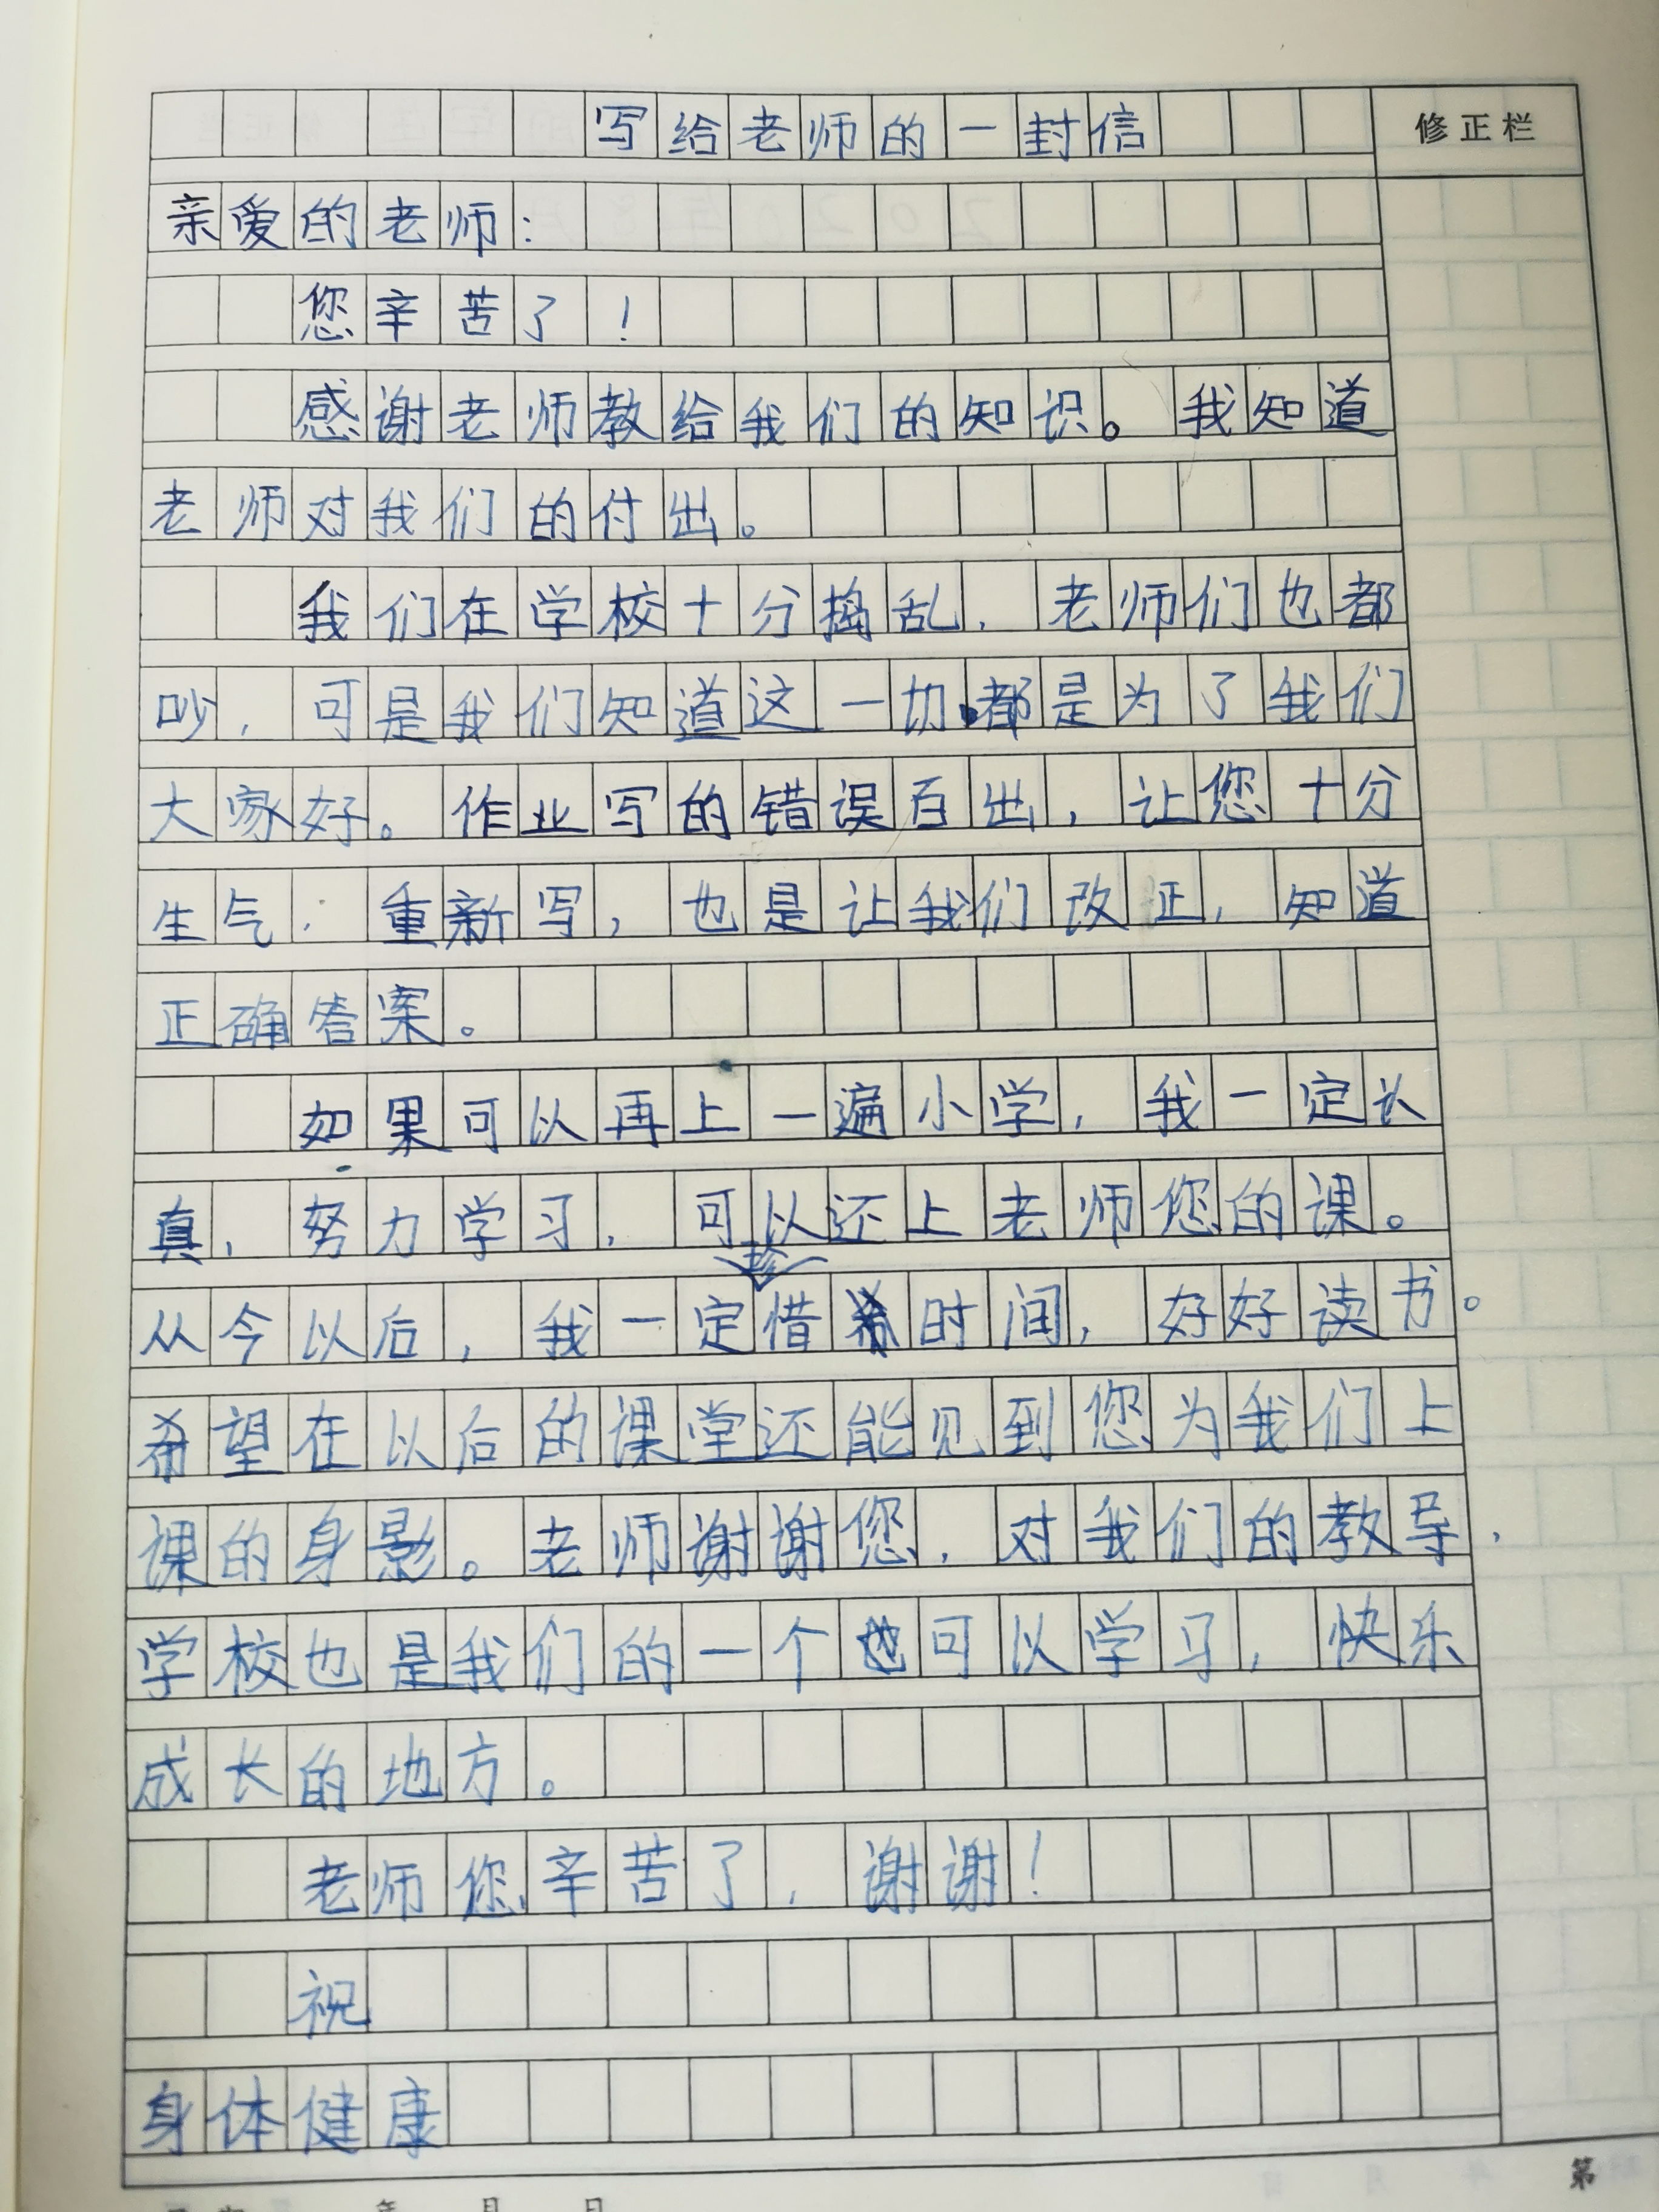 写给老师的一封信
修正栏
亲爱的老师：
您辛苦了！
感谢老师教给我们的知识。我知道
老师对我们的付出。
我们在学校十分捣乱，老师们也都
吵，可是我们知道这一切都是为了我们
大家好。作业写的错误百出，让您十分
生气，重新写，也是让我们改正，知道
正确答案。
如果可以再上一遍小学，我一定认
真，努力学习，可以还上老师您的课。
从今以后，我一定珍惜时间，好好读书。
希望在以后的课堂还能见到您为我们上
课的身影。老师谢谢您，对我们的教导，
学校也是我们的一个可以学习，快乐
成长的地方。
老师您辛苦了，谢谢！
祝
身体健康
第
年 月 日